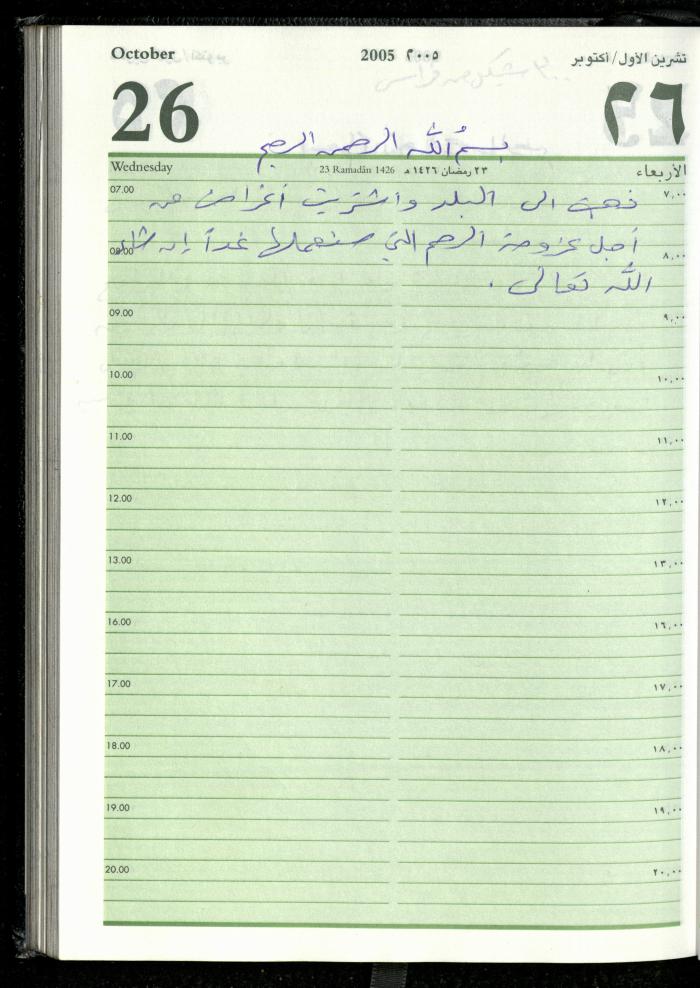 October 2005 ٢٠٠٥ تشرين الأول/أكتوبر
26 ٢٦
بسم الله الرحمن الرحيم
Wednesday 23 Ramadān 1426 ٢٣ رمضان ١٤٢٦ هـ الأربعاء
07.00 ٧,٠٠
ذهبت الى البلد واشتريت أغراض من
أجل عزومة الرحم التي سنعملها غداً إن شاء
08.00 ٨,٠٠
الله تعالى .
09.00 ٩,٠٠
10.00 ١٠,٠٠
11.00 ١١,٠٠
12.00 ١٢,٠٠
13.00 ١٣,٠٠
16.00 ١٦,٠٠
17.00 ١٧,٠٠
18.00 ١٨,٠٠
19.00 ١٩,٠٠
20.00 ٢٠,٠٠